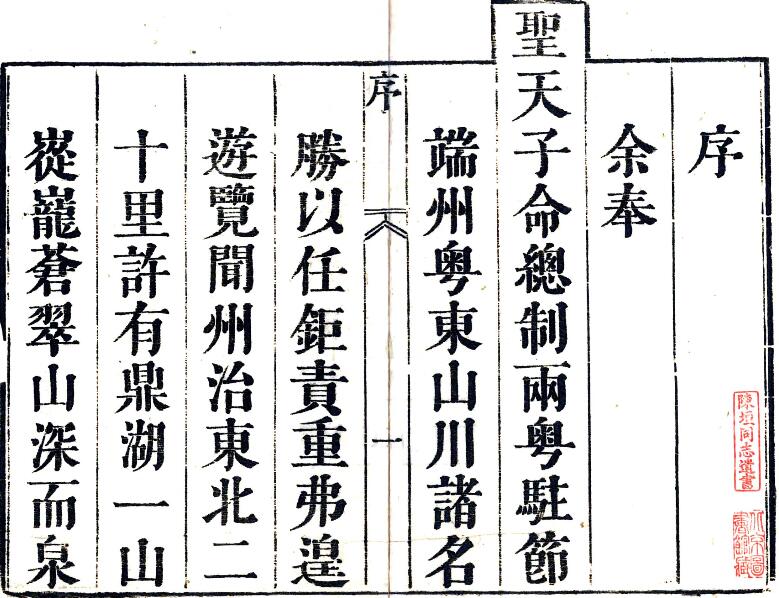 序
余奉
聖天子命總制兩粤駐節
端州粤東山川諸名
序
一
勝以任鉅責重弗遑
遊覽聞州治東北二
十里許有鼎湖一山
嵸巃蒼翠山深而泉
陳垣同志遺書
北京圖書館藏